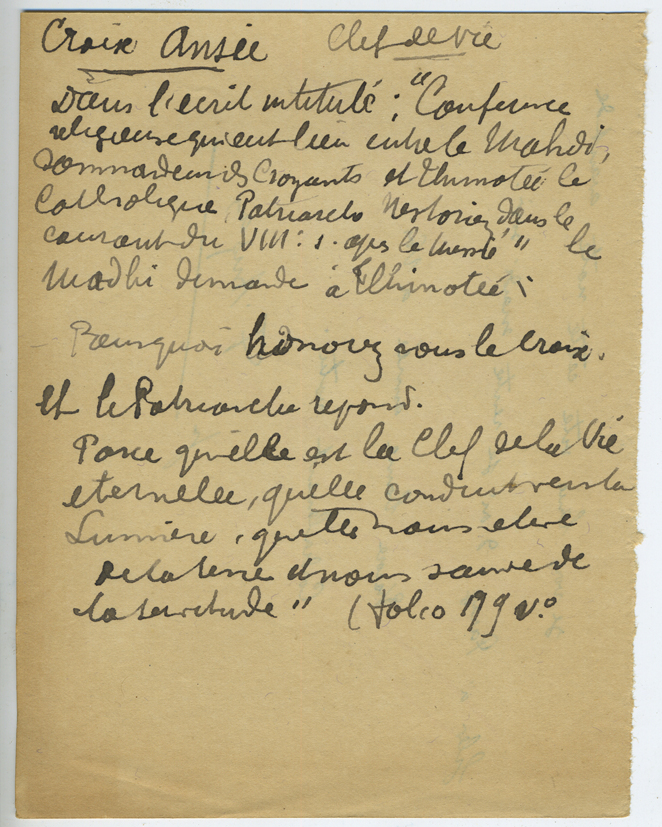 Croix Ansée Clef de Vie
Dans l'ecrit intitulé : "Conference
religieuse qui eut lieu entre le Mahdi,
Commandeur des Croyants et Thimotée le
Catholique, Patriarche Nestorien, dans le
courant du VIII: s. apres le Messie" le
Madhi demande à Thimotée :
- Pourquoi honorez vous la Croix.
et le Patriarche repond.
Parce qu'elle est la Clef de la Vie
eternelle, qu'elle conduit vers la
Lumière, qu'elle nous eleve
de la terre et nous sauve de
la servitude" (folio 199 v.o